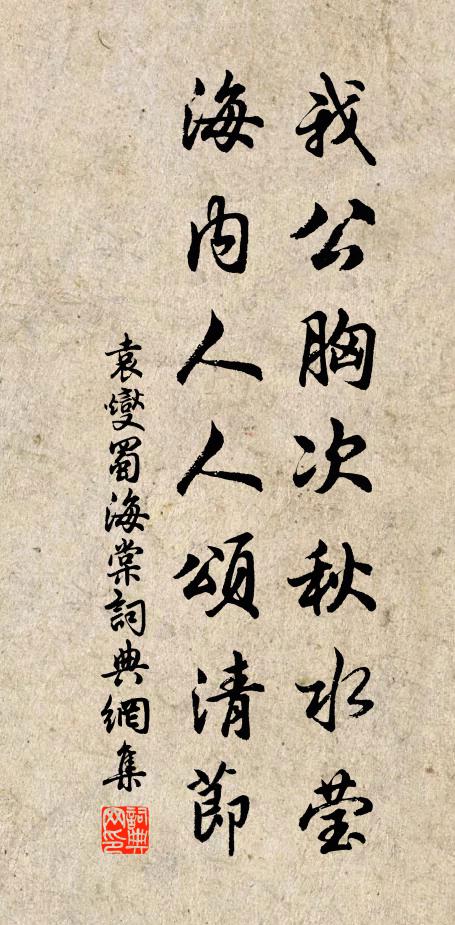 我公胸次秋水莹
海内人人頌清節
袁燮蜀海棠詞典網集
詞典网印